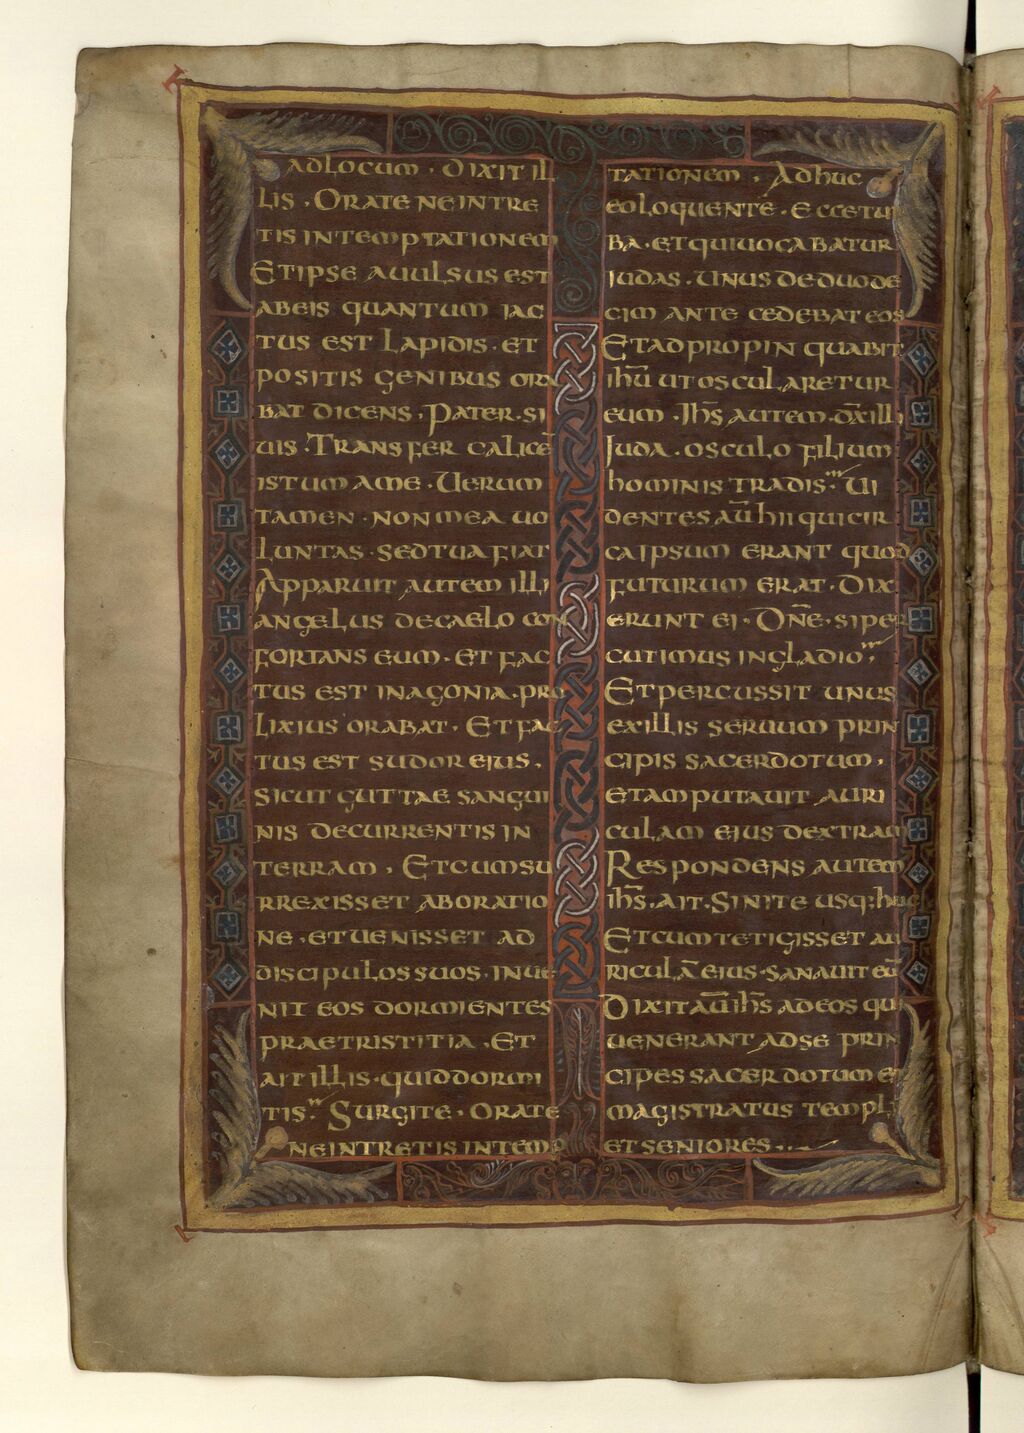 ADLOCUM · DIXIT IL
LIS · ORATE NEINTRE
TIS INTEMPTATIONEM
ETIPSE AVULSUS EST
ABEIS QUANTUM IAC
TUS EST LAPIDIS · ET
POSITIS GENIBUS ORA
BAT DICENS · PATER · SI
UIS · TRANSFER CALICĒ
ISTUM AME · UERUM
TAMEN · NON MEA UO
LUNTAS · SEDTUA FIAT
APPARUIT AUTEM ILLI
ANGELUS DECAELO CON
FORTANS EUM · ET FAC
TUS EST INAGONIA · PRO
LIXIUS ORABAT · ET FAC
TUS EST SUDOR EIUS ,
SICUT GUTTAE SANGUI
NIS DECURRENTIS IN
TERRAM , ETCUMSU
RREXISSET ABORATIO
NE · ETUENISSET AD
DISCIPULOS SUOS · INUE
NIT EOS DORMIENTES
PRAETRISTITIA · ET
AIT ILLIS · QUIDDORMI
TIS SURGITE · ORATE
NEINTRETIS INTEMP
TATIONEM , ADHUC
EOLOQUENTE · ECCETUR
BA · ETQUIUOCABATUR
IUDAS · UNUS DEDUODE
CIM ANTE CEDEBAT EOS
ETADPROPINQUABIT
IHŪ UT OSCULARETUR
EUM · IHS̄ AUTEM · DX̄ILLI
IUDA · OSCULO FILIUM
HOMINIS TRADIS UI
DENTES AŪ HII QUICIR
CAIPSUM ERANT QUOD
FUTURUM ERAT · DIX
ERUNT EI · DN̄E · SIPER
CUTIMUS INGLADIO
ETPERCUSSIT UNUS
EXILLIS SERUUM PRIN
CIPIS SACERDOTUM ,
ETAMPUTAUIT AURI
CULAM EIUS DEXTRAM
RESPONDENS AUTEM
IHS̄ · AIT · SINITE USQ; HUC
ETCUMTETIGISSET AU
RICULĀ EIUS · SANAUIT EŪ
DIXIT AŪ IHS̄ ADEOS QUI
UENERANT ADSE PRIN
CIPES SACERDOTUM ET
MAGISTRATUS TEMPLI
ETSENIORES · · ·